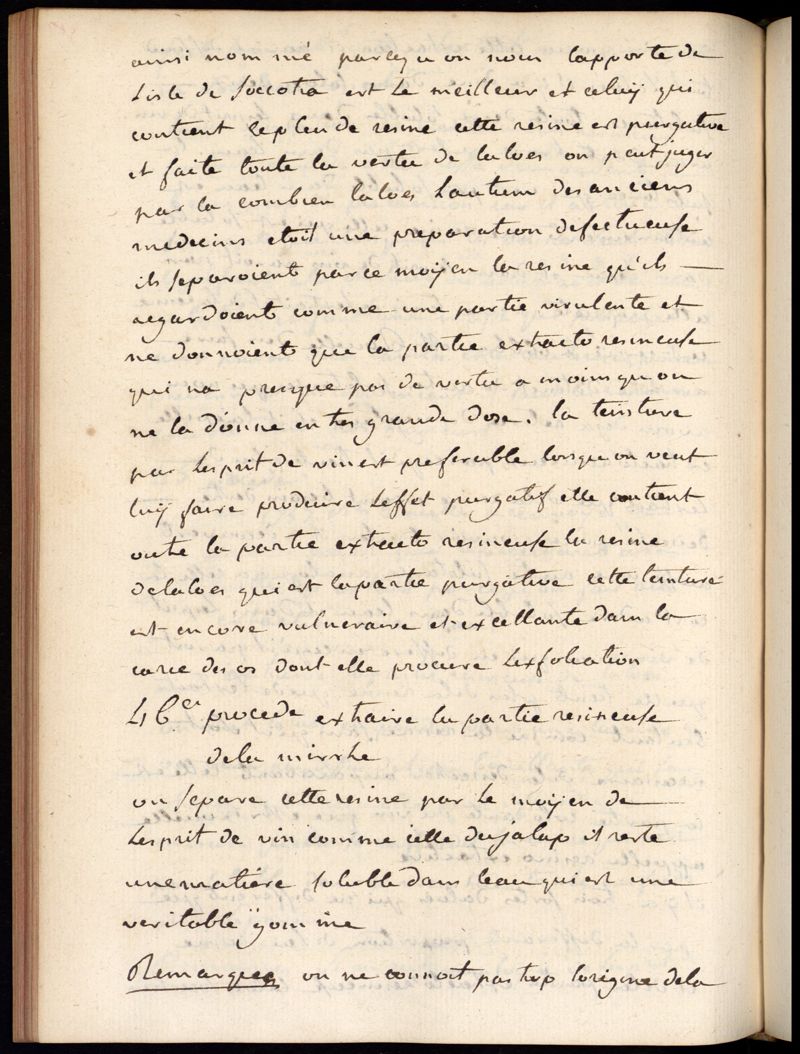 ainsi nommé parcequ on nous lapporte de
Liste de Soccotra est Le meilleur et celuy qui
contient le plus de resine cette resine est purgative
et faite toute la vertu de laloes on peut juger
par la combien laloes Lautum des anciens
medecins etoit une preparation defectueuse
ils separoient par ce moyen la resine qu'ils —
regardoient comme une partie virulente et
ne donnoient que la partie extracto resineuse
qui na presque pas de vertu a moins qu on
ne la donne en tres grande dose. la teinture
par Lesprit de vin est preferable lorsqu on veut
luy faire produire Leffet purgatif elle contient
oute la partie extracto resineuse la resine
de laloes qui est la partie purgative cette teinture
est encore vulneraire et excellante dans la
carie des os dont elle procure Lexfoliation
procede extraire la partie resineuse
de la mirrhe
on separe cette resine par Le moyen de
Lesprit de vin comme celle du jalap il reste
une matiere soluble dans leau qui est une
veritable gomme
Remarques on ne connoit pas trop lorigine de la